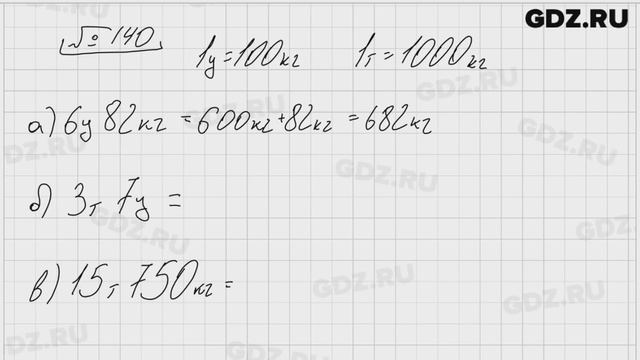 GDZ.RU
№ 140
1ц=100кг 1т=1000кг
а) 6ц 82кг =600кг+82кг =682кг
б) 3т 7ц =
в) 15т 750кг=